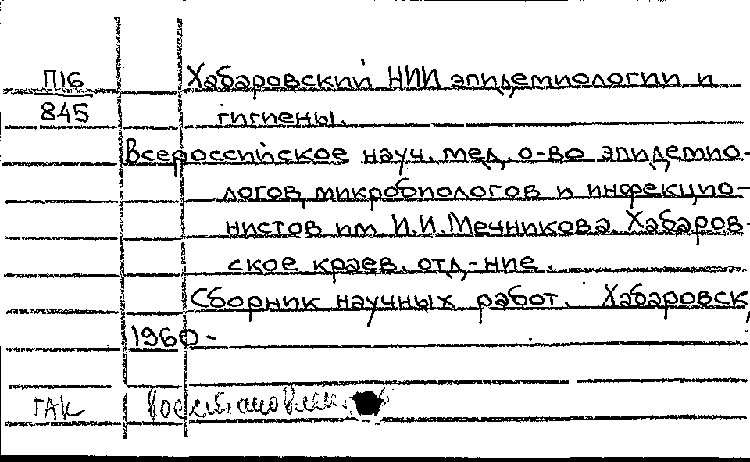 П16 Хабаровский НИИ эпидемиологии и
845 гигиены.
Всероссийское науч. мед. о-во эпидемио-
логов, микробиологов и инфекцио-
нистов им. И.И.Мечникова. Хабаров-
ское краев. отд-ние.
Сборник научных работ. Хабаровск,
1960-
ГАК